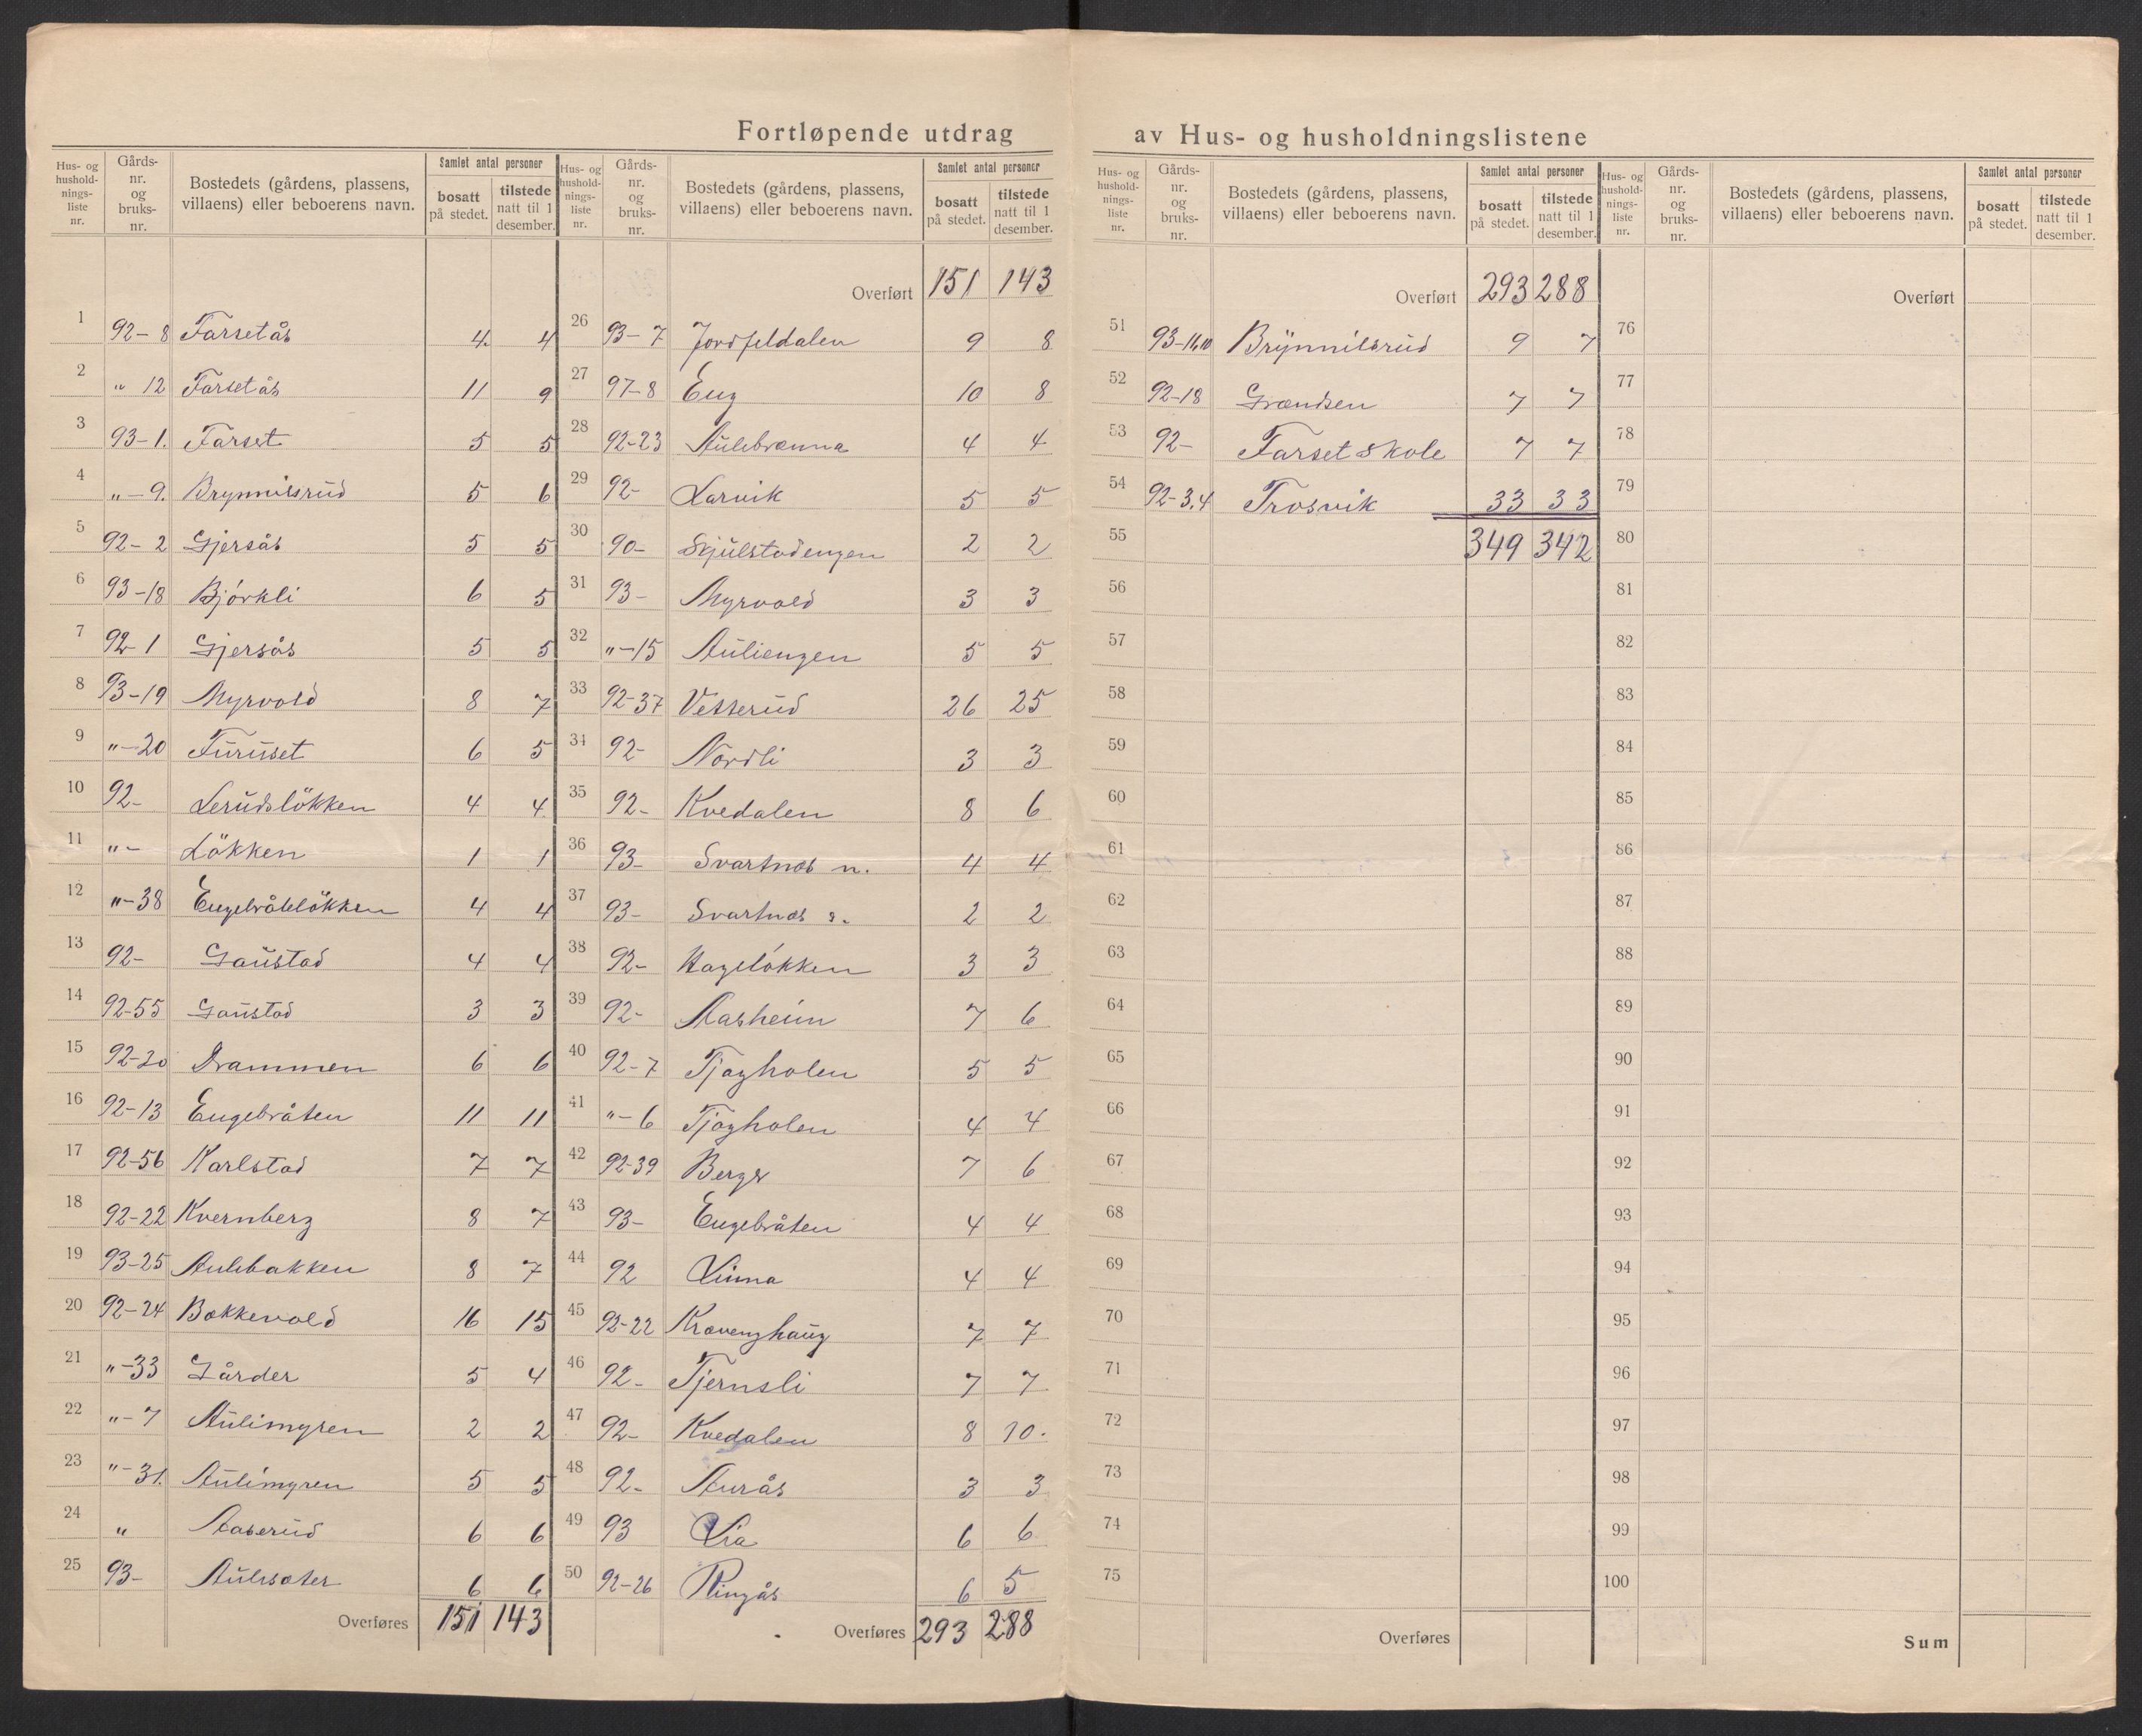 Fortløpende utdrag av Hus- og husholdningslistene
Hus- og husholdningsliste nr. | Gårds-nr. og bruks-nr. | Bostedets (gårdens, plassens, villaens) eller beboerens navn. | Samlet antal personer bosatt på stedet. | tilstede natt til 1 desember.
1 92-8 Farsetås 4. 4
2 " 12 Farsetås 11 9
3 93-1. Farset 5 5
4 "-9. Brynnilsrud 5 6
5 92-2 Gjersås 5 5
6 93-18 Björkli 6 5
7 92-1 Gjersås 5 5
8 93-19 Myrvold 8 7
9 "-20 Furuset 6 5
10 92- Lerudslökken 4 4
11 "- Lökken 1 1
12 "-38 Engebråtelökken 4 4
13 92- Gaustad 4 4
14 92-55 Gaustad 3 3
15 92-20 Drammen 6 6
16 92-13 Engebråten 11 11
17 92-56 Karlstad 7 7
18 92-22 Kvernberg 8 7
19 93-25 Aulibakken 8 7
20 92-24 Bakkevold 16 15
21 "-33 Gårder 5 4
22 "-7 Aulimyren 2 2
23 "-31. Aulimyren 5 5
24 " Aaserud 6 6
25 93- Aulisæter 6 6
Overføres 151 143
Hus- og husholdningsliste nr. | Gårds-nr. og bruks-nr. | Bostedets (gårdens, plassens, villaens) eller beboerens navn. | Samlet antal personer bosatt på stedet. | tilstede natt til 1 desember.
Overført 151 143
26 93-7 Jordfeldalen 9 8
27 97-8 Eng 10 8
28 92-23 Aulebrænna 4 4
29 92- Larvik 5 5
30 90- Skjulstadengen 2 2
31 93- Myrvold 3 3
32 "-15 Auliengen 5 5
33 92-37 Vesserud 26 25
34 92- Nordli 3 3
35 92- Kvedalen 8 6
36 93- Svartnæs n. 4 4
37 93- Svartnæs s. 2 2
38 92- Hagelökken 3 3
39 92- Aasheim 7 6
40 92-7 Tjagholen 5 5
41 "-6 Tjagholen 4 4
42 92-39 Berger 7 6
43 93- Engebråten 4 4
44 92 Linna 4 4
45 92-22 Kravenghaug 7 7
46 92- Tjernsli 7 7
47 92- Kvedalen 8 10.
48 92- Aurås 3 3
49 93 Lia 6 6
50 92-26 Ringås 6 5
Overføres 293 288
Hus- og husholdningsliste nr. | Gårds-nr. og bruks-nr. | Bostedets (gårdens, plassens, villaens) eller beboerens navn. | Samlet antal personer bosatt på stedet. | tilstede natt til 1 desember.
Overført 293 288
51 93-11,10 Brynnilsrud 9 7
52 92-18 Grændsen 7 7
53 92- Farset skole 7 7
54 92-3.4 Trosvik 33 33
55 349 342
56
57
58
59
60
61
62
63
64
65
66
67
68
69
70
71
72
73
74
75
Overføres
Hus- og husholdningsliste nr. | Gårds-nr. og bruks-nr. | Bostedets (gårdens, plassens, villaens) eller beboerens navn. | Samlet antal personer bosatt på stedet. | tilstede natt til 1 desember.
Overført
76
77
78
79
80
81
82
83
84
85
86
87
88
89
90
91
92
93
94
95
96
97
98
99
100
Sum